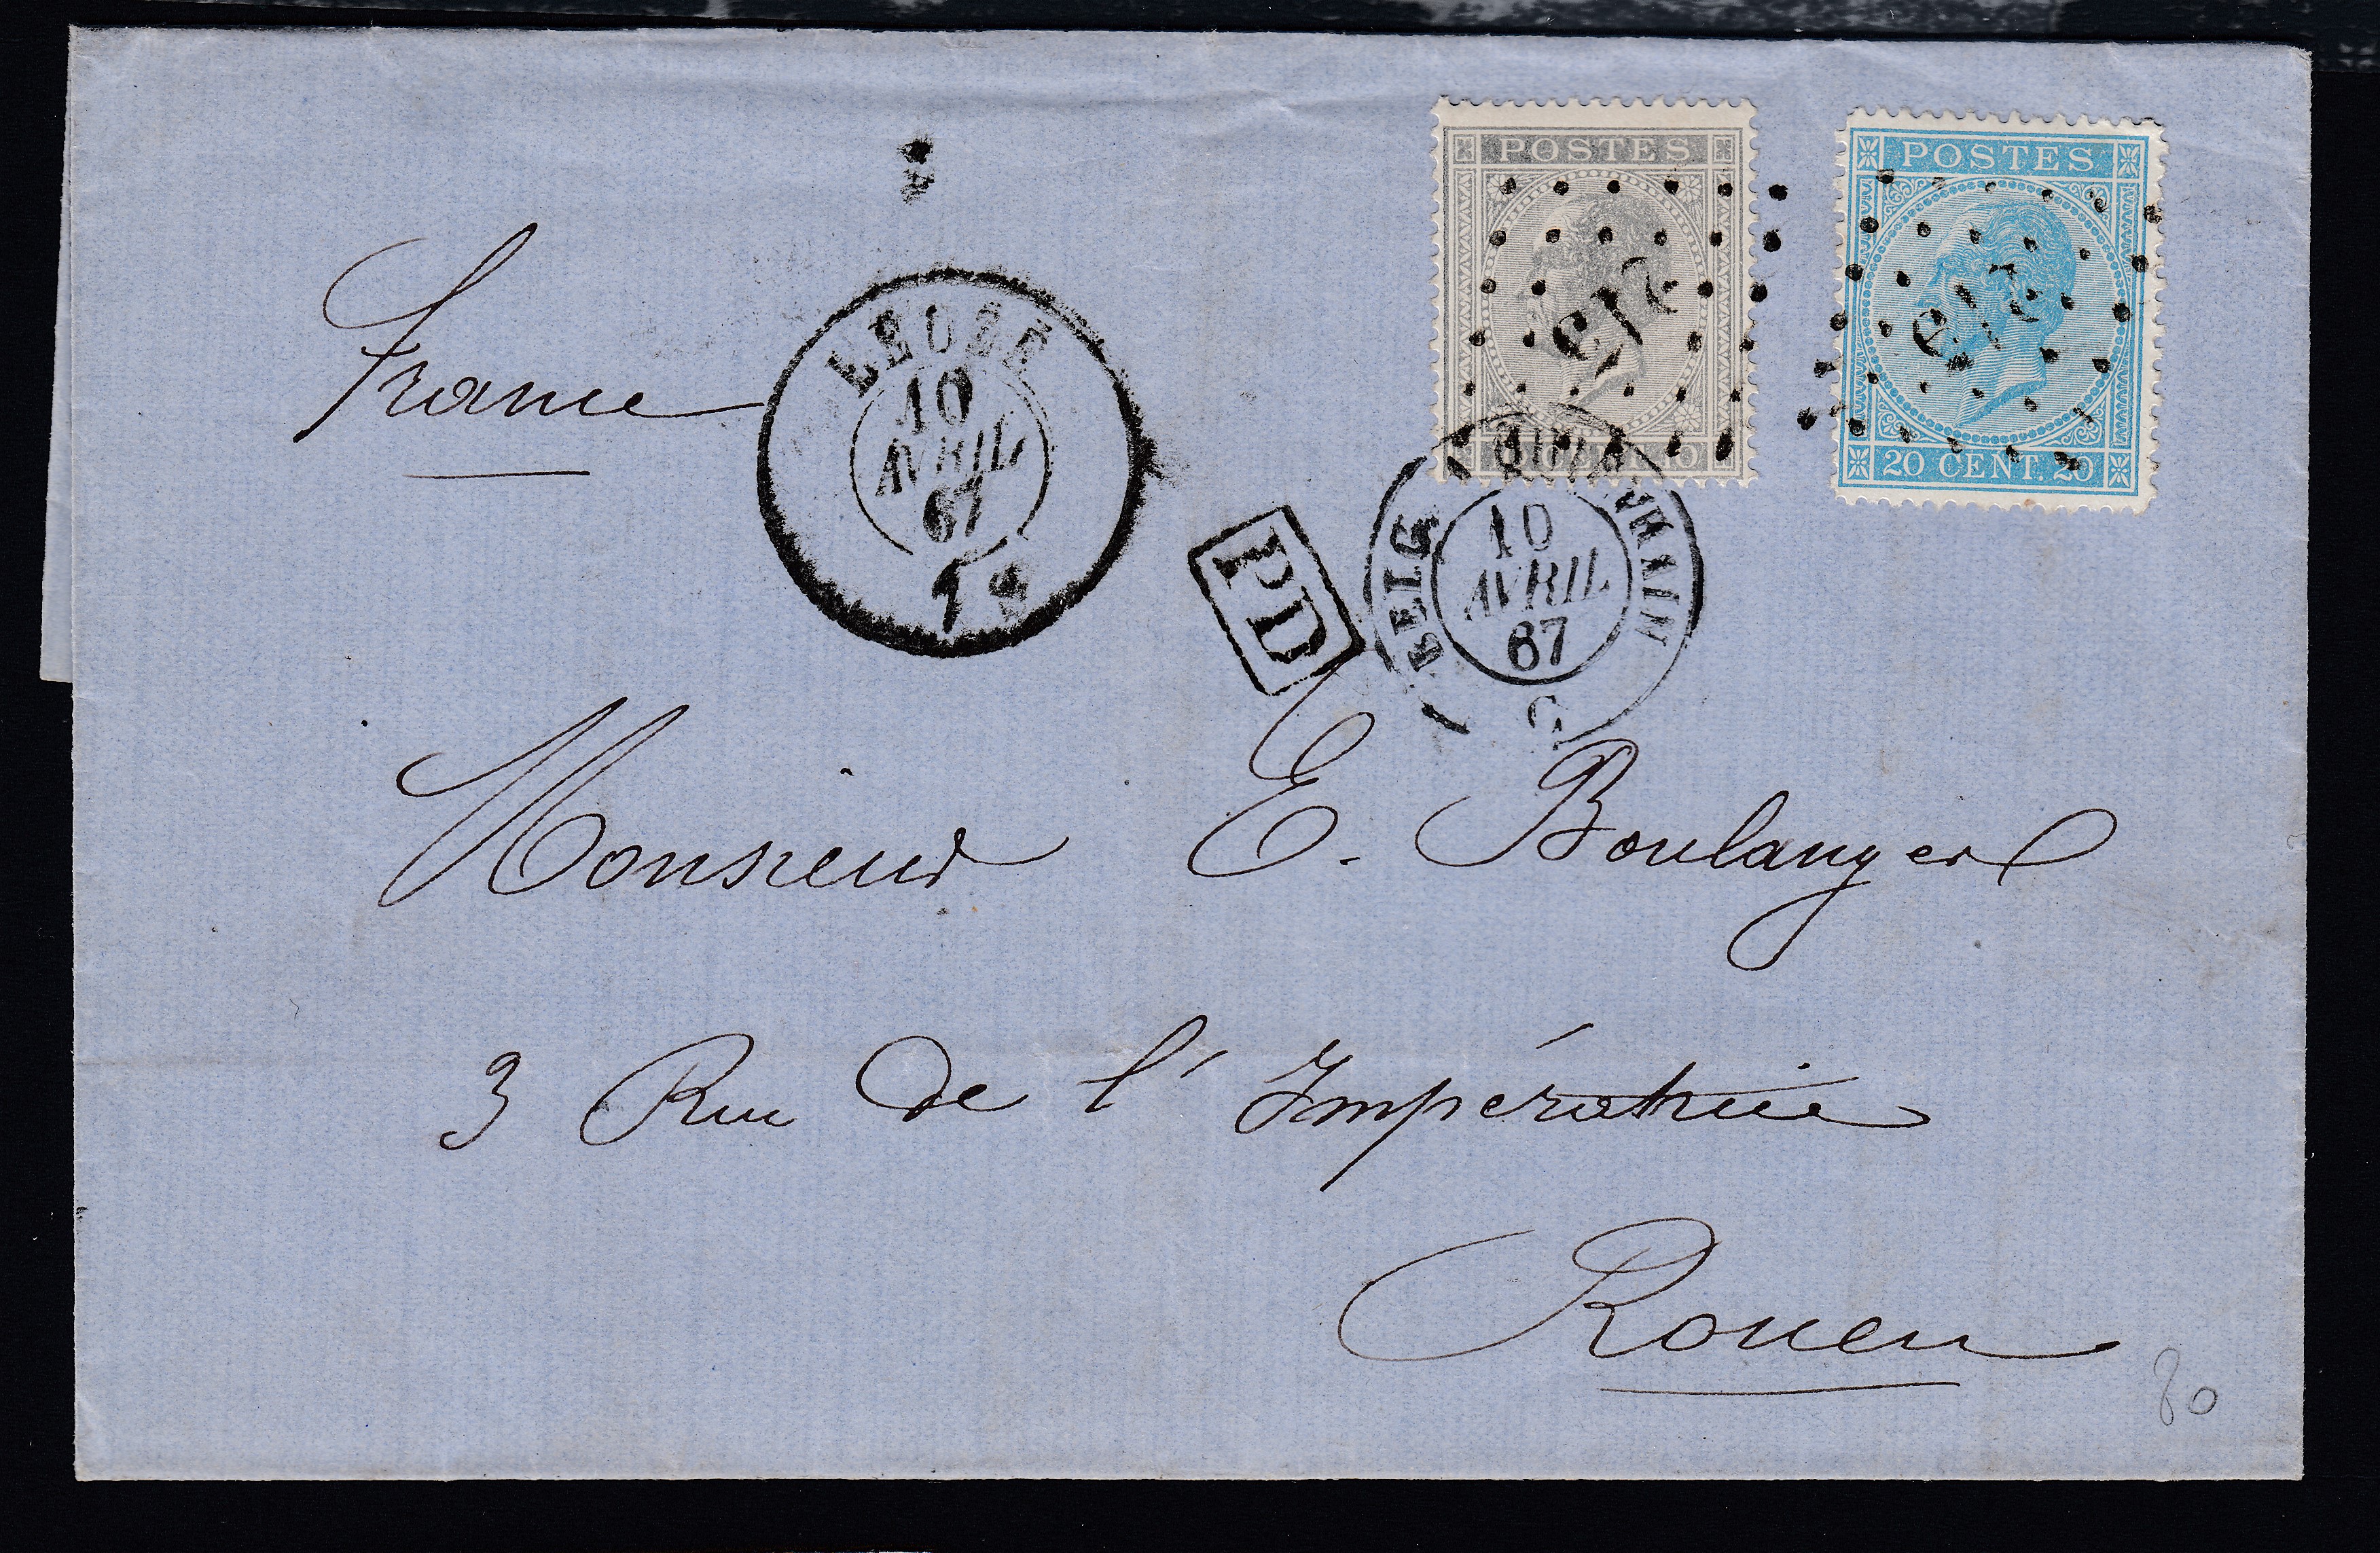 POSTES
POSTES
213
213
20 CENT. 20
France
LEUZE
10
AVRIL
67
PD
BELG
QUIÉVRAIN
10
AVRIL
67
Monsieur E. Boulanger
3 Rue de l'Impératrice
Rouen
80